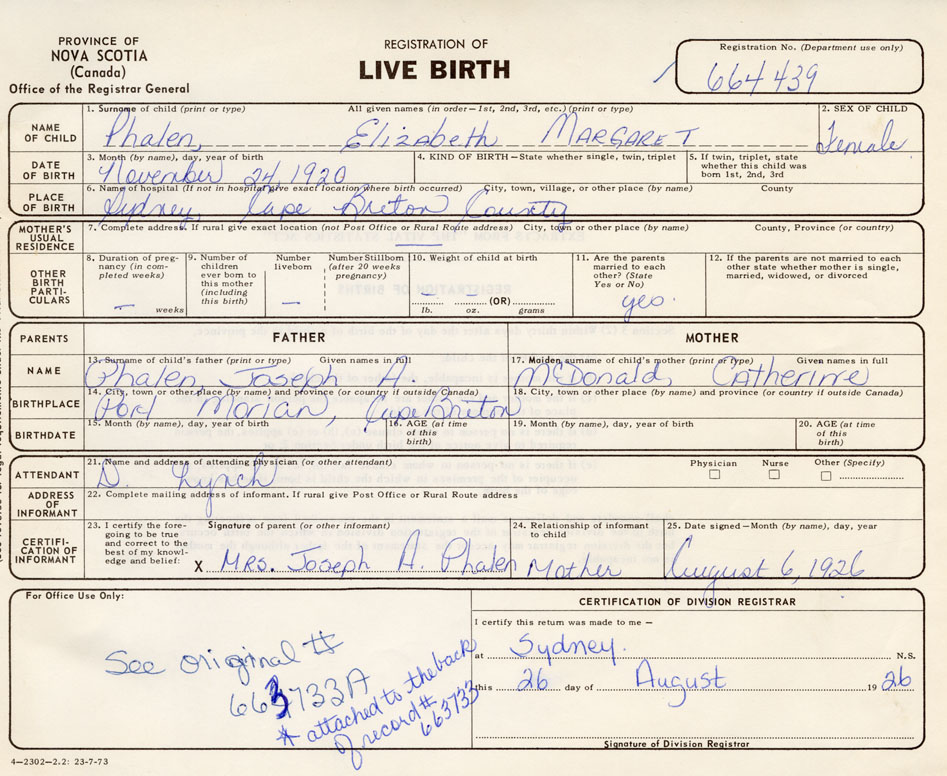 PROVINCE OF
NOVA SCOTIA
(Canada)
Office of the Registrar General
REGISTRATION OF
LIVE BIRTH
Registration No. (Department use only)
664439
NAME OF CHILD
1. Surname of child (print or type) All given names (in order—1st, 2nd, 3rd, etc.) (print or type)
Phalen, Elizabeth MARGARET
2. SEX OF CHILD
Female
DATE OF BIRTH
3. Month (by name), day, year of birth
November 24, 1920
4. KIND OF BIRTH—State whether single, twin, triplet
5. If twin, triplet, state
whether this child was
born 1st, 2nd, 3rd
PLACE OF BIRTH
6. Name of hospital (If not in hospital give exact location where birth occurred) City, town, village, or other place (by name) County
Sydney, Cape Breton County
MOTHER'S USUAL RESIDENCE
7. Complete address. If rural give exact location (not Post Office or Rural Route address) City, town or other place (by name) County, Province (or country)
OTHER BIRTH PARTI-CULARS
8. Duration of preg-
nancy (in com-
pleted weeks)
weeks
9. Number of
children
ever born to
this mother
(including
this birth)
Number
liveborn
Number Stillborn
(after 20 weeks
pregnancy)
10. Weight of child at birth
(OR)
lb. oz. grams
11. Are the parents
married to each
other? (State
Yes or No)
yes.
12. If the parents are not married to each
other state whether mother is single,
married, widowed, or divorced
PARENTS FATHER MOTHER
NAME
13. Surname of child's father (print or type) Given names in full
Phalen, Joseph A.
17. Maiden surname of child's mother (print or type) Given names in full
McDonald, Catherine
BIRTHPLACE
14. City, town or other place (by name) and province (or country if outside Canada)
Port Morian, Cape Breton
18. City, town or other place (by name) and province (or country if outside Canada)
BIRTHDATE
15. Month (by name), day, year of birth
16. AGE (at time
of this
birth)
19. Month (by name), day, year of birth
20. AGE (at time
of this
birth)
ATTENDANT
21. Name and address of attending physician (or other attendant)
D. Lynch
Physician Nurse Other (Specify)
ADDRESS OF INFORMANT
22. Complete mailing address of informant. If rural give Post Office or Rural Route address
CERTIFI-CATION OF INFORMANT
23. I certify the fore-
going to be true
and correct to the
best of my knowl-
edge and belief:
Signature of parent (or other informant)
X Mrs. Joseph A. Phalen
24. Relationship of informant
to child
Mother
25. Date signed—Month (by name), day, year
August 6, 1926
For Office Use Only:
See original #
663733A
* attached to the back
of record #
663733
CERTIFICATION OF DIVISION REGISTRAR
I certify this return was made to me —
at Sydney. N.S.
this 26 day of August 1926
Signature of Division Registrar
4—2302—2.2: 23-7-73